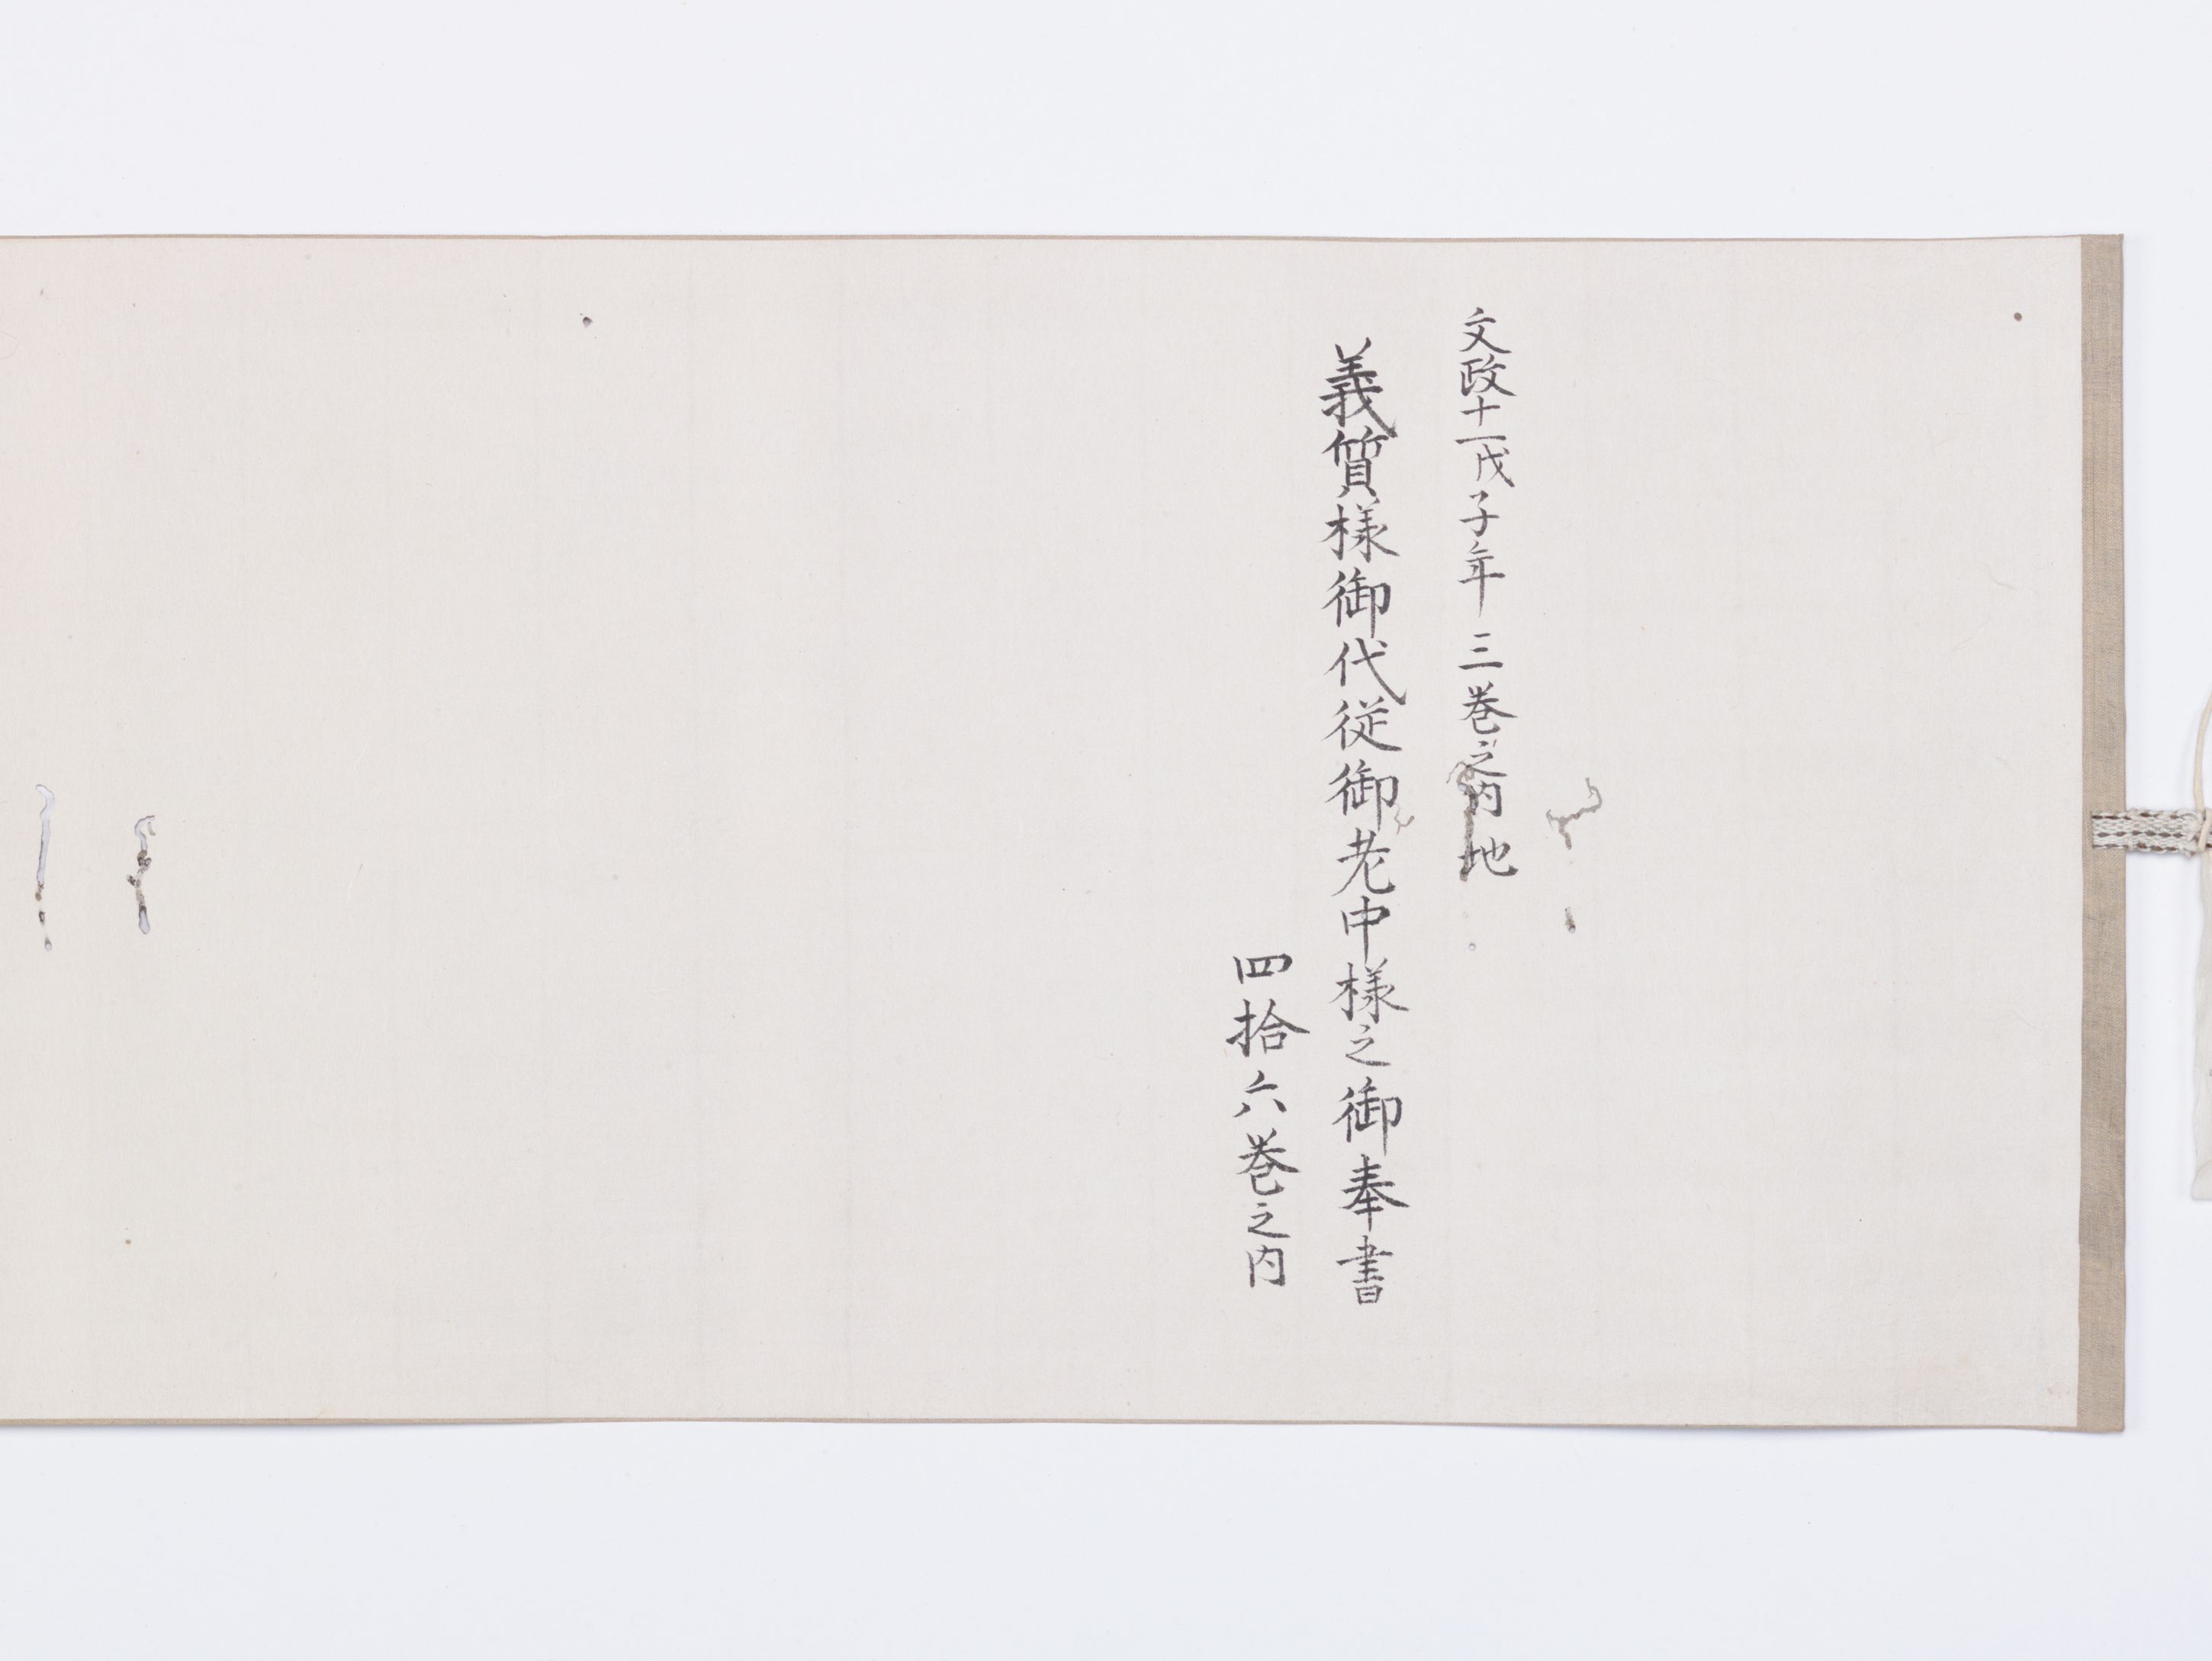 文政十一戊子年 三巻之内 地
義質様御代従御老中様之御奉書
四拾六巻之内